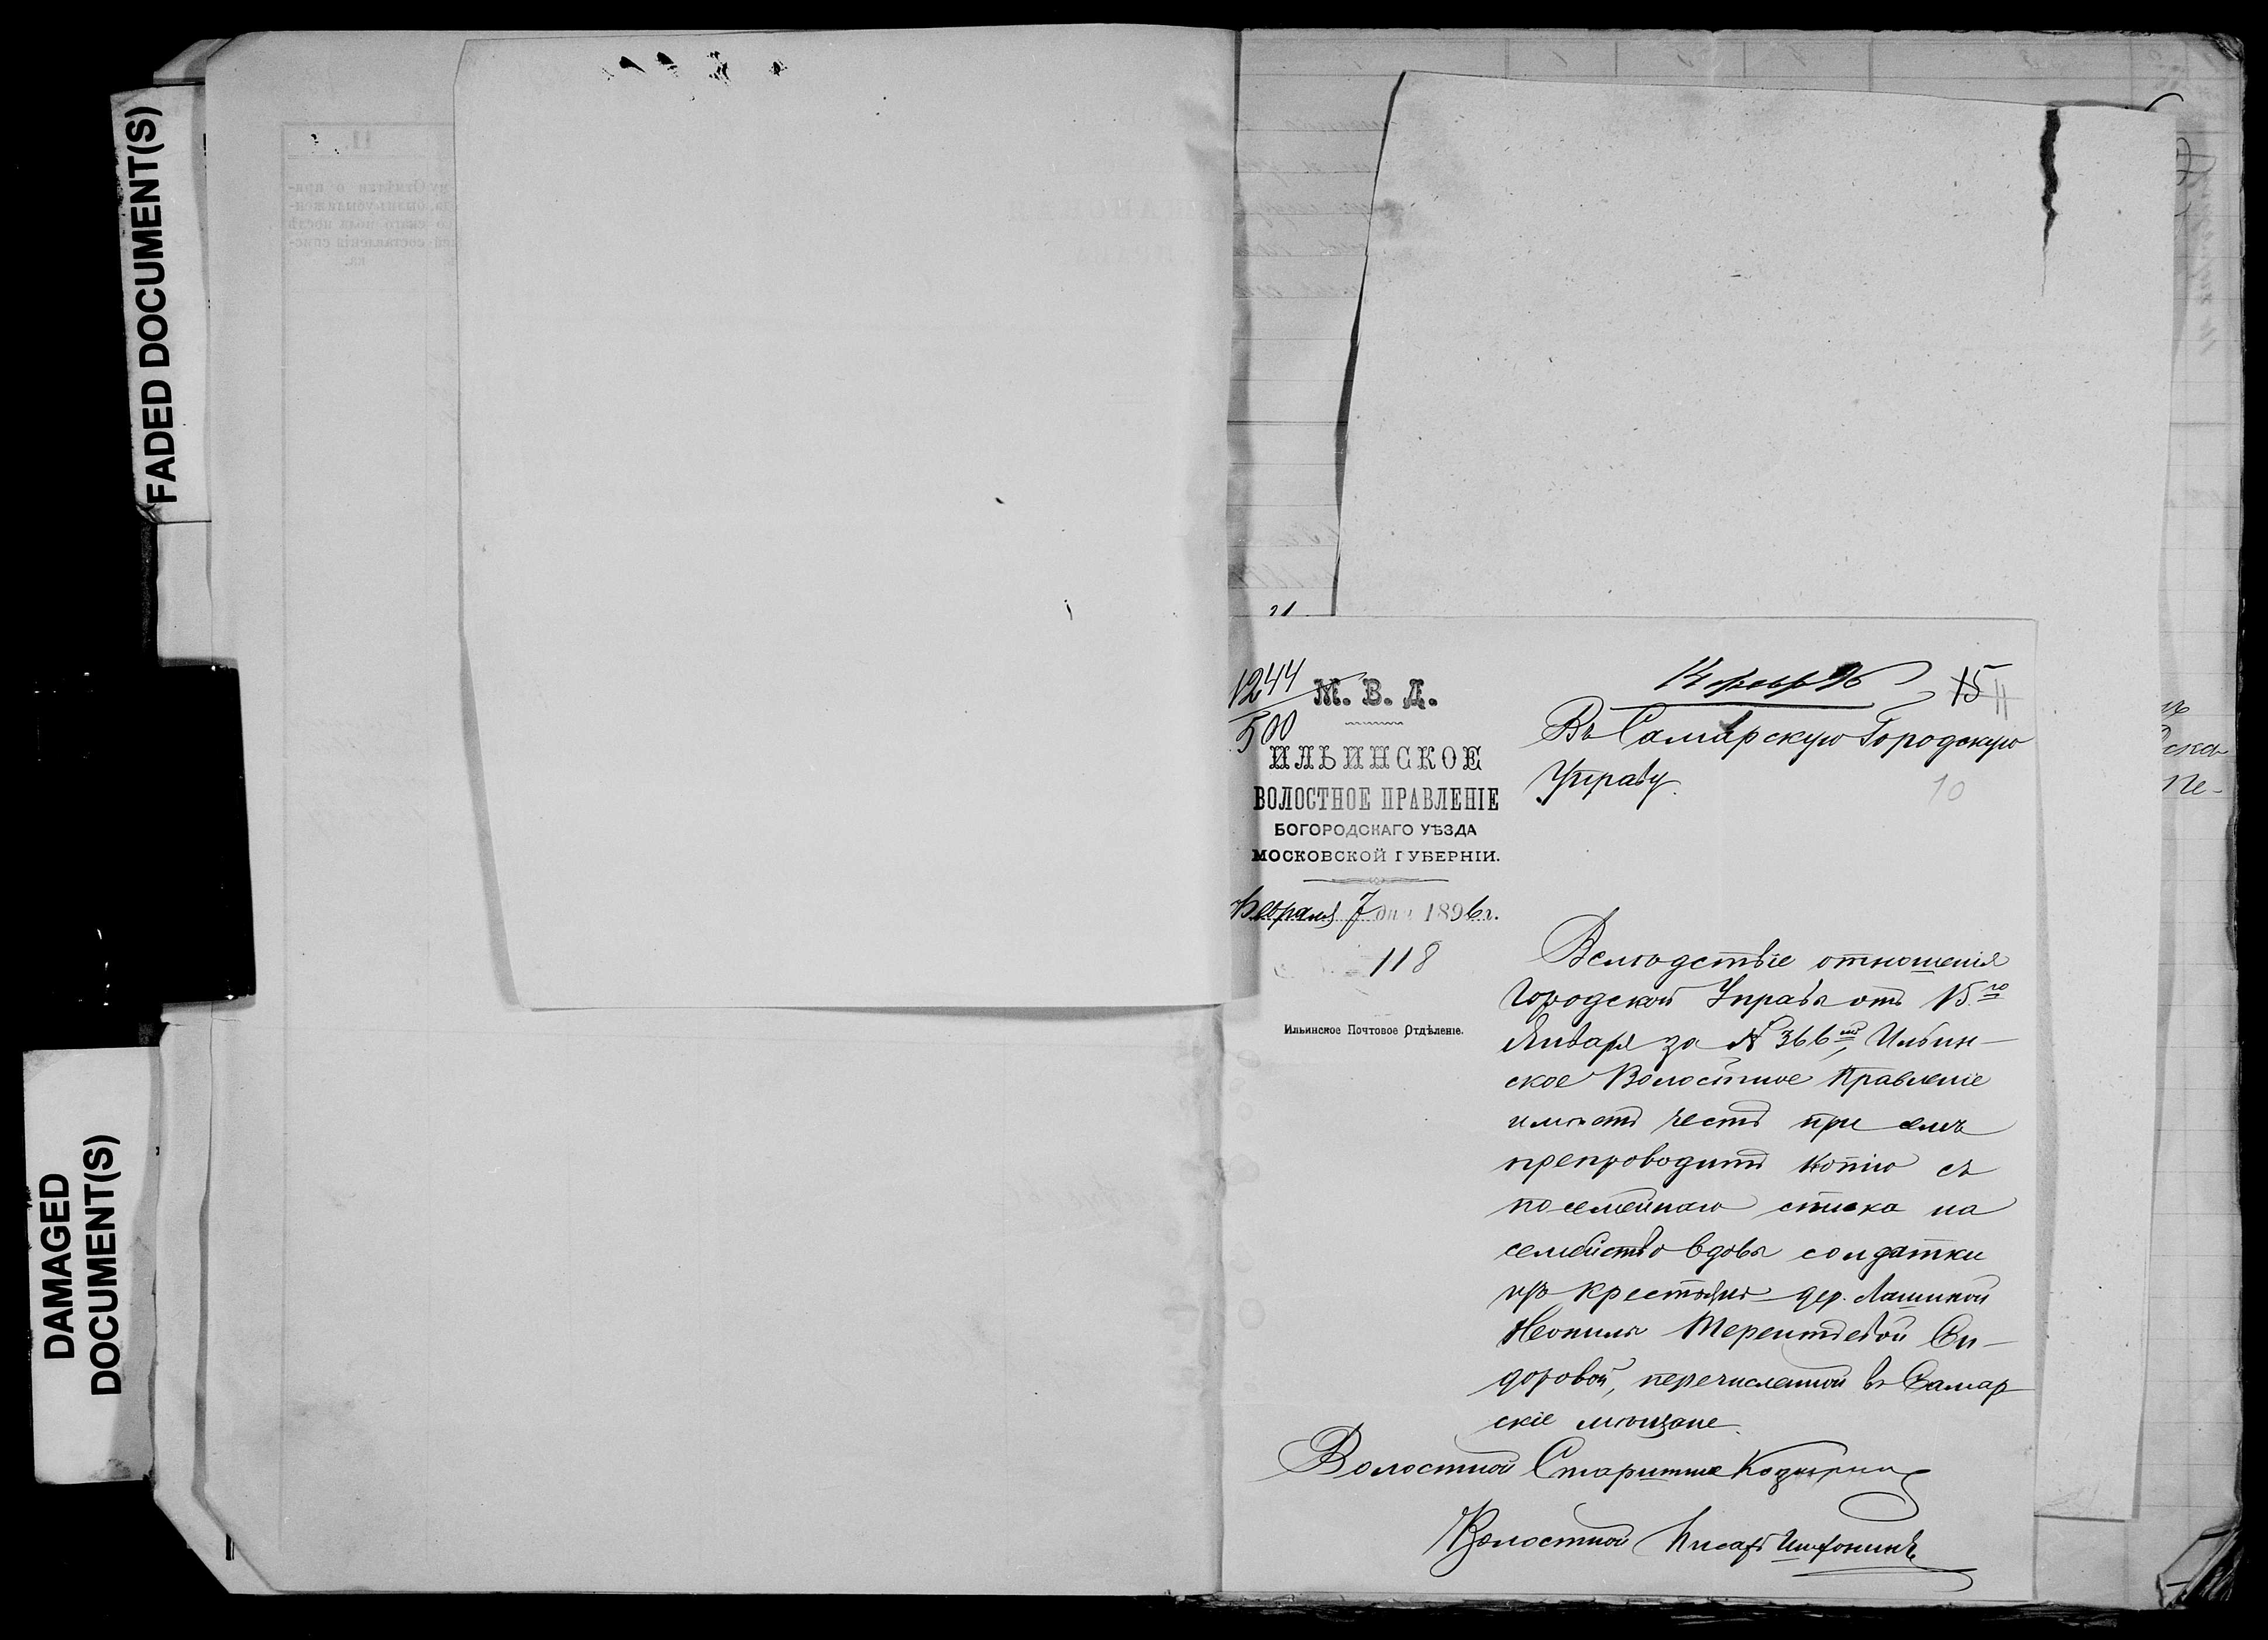 FADED DOCUMENT(S)
DAMAGED
DOCUMENT(S)
1244
500
М. В. Д.
ИЛЬИНСКОЕ
ВОЛОСТНОЕ ПРАВЛЕНІЕ
БОГОРОДСКАГО УѢЗДА
МОСКОВСКОЙ ГУБЕРНІИ.
Февраля 7 дня 1896 г.
118
Ильинское Почтовое Отдѣленіе.
14 февр 96
15
11
Въ Самарскую Городскую
Управу.
10
Вслѣдствіе отношенія
Городской Управы отъ 15го
Января за № 366мъ, Ильин-
ское Волостное Правленіе
имѣетъ честь при семъ
препроводить копію съ
посемейнаго списка на
семейство вдовы солдатки
изъ крестьянъ дер. Лашиной
Неонилы Терентьевой Си-
доровой, перечисленной въ Самар
скіе мѣщане.
Волостной Старшина
Волостной Писарь